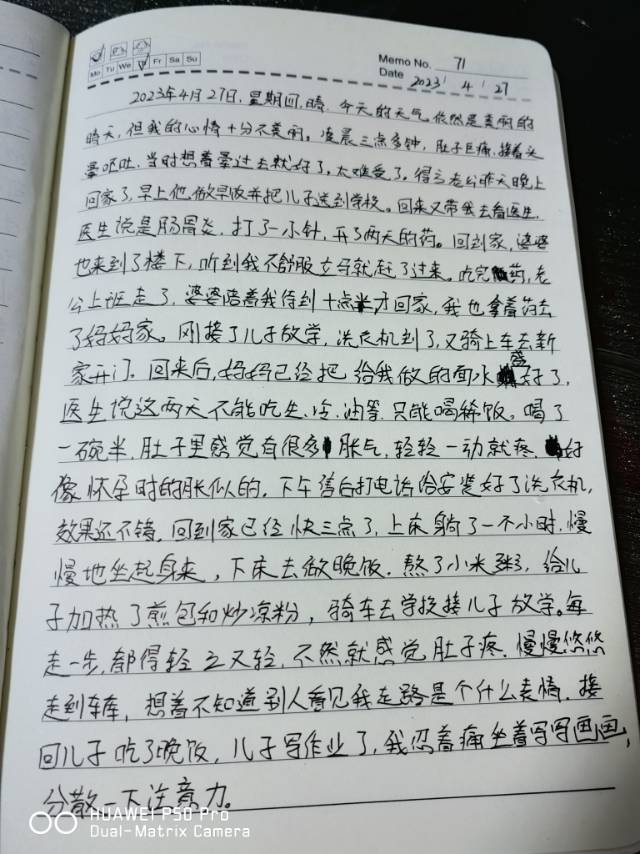 Memo No. 71
Mo Tu We Fr Sa Su
Date 2023 / 4 / 27
2023年4月27日,星期四,晴. 今天的天气依然是美丽的
晴天,但我的心情十分不美丽。凌晨三点多钟,肚子巨痛,接着头
晕呕吐,当时想着晕过去就好了,太难受了。得亏老公昨天晚上
回家了,早上他做早饭并把儿子送到学校。回来又带我去看医生,
医生说是肠胃炎,打了一小针,开了两天的药。回到家,婆婆
也来到了楼下,听到我不舒服立马就赶了过来。吃完药,老
公上班走了,婆婆陪着我待到十点半才回家,我也拿着药去
了妈妈家。刚接了儿子放学,洗衣机到了,又骑上车去新
家开门. 回来后,妈妈已经把给我做的面水盛好了,
医生说这两天不能吃生、冷、油等,只能喝稀饭。喝了
一碗半,肚子里感觉有很多胀气,轻轻一动就疼,好
像怀孕时的胀似的. 下午售后打电话给安装好了洗衣机,
效果还不错. 回到家已经快三点了,上床躺了一个小时,慢
慢地坐起身来,下床去做晚饭. 熬了小米粥,给儿
子加热了煎包和炒凉粉,骑车去学校接儿子放学。每
走一步,都得轻之又轻,不然就感觉肚子疼. 慢慢悠悠
走到车库,想着不知道别人看见我走路是个什么表情. 接
回儿子吃了晚饭,儿子写作业了,我忍着痛坐着写写画画,
分散一下注意力。
HUAWEI P50 Pro
Dual-Matrix Camera